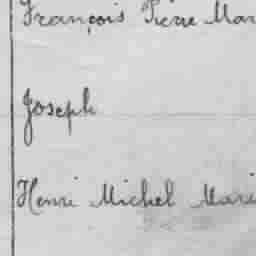 François Pierre Mar
Joseph
Henri Michel Marie